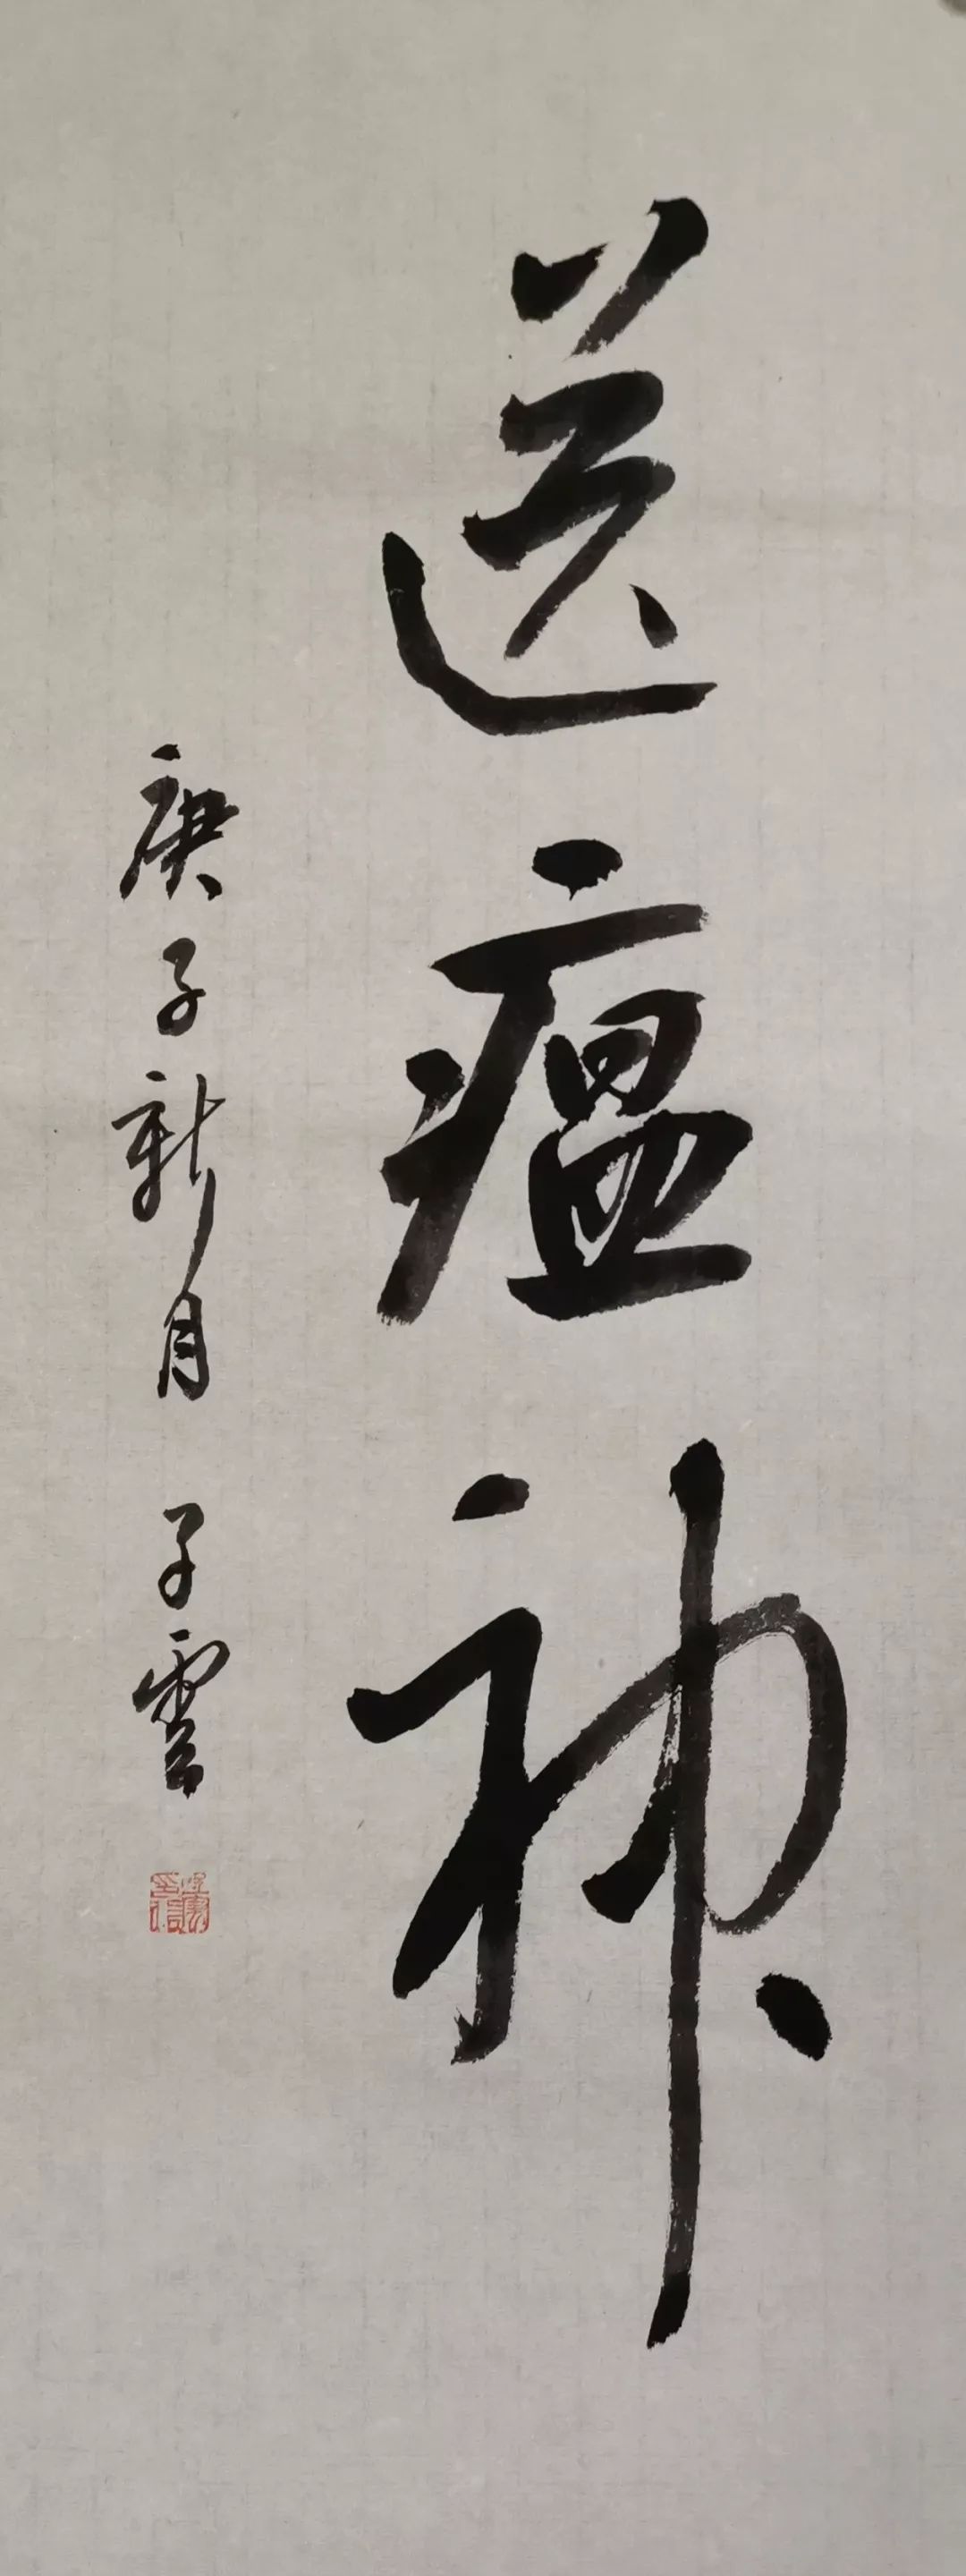 送瘟神
庚子新月 子雲